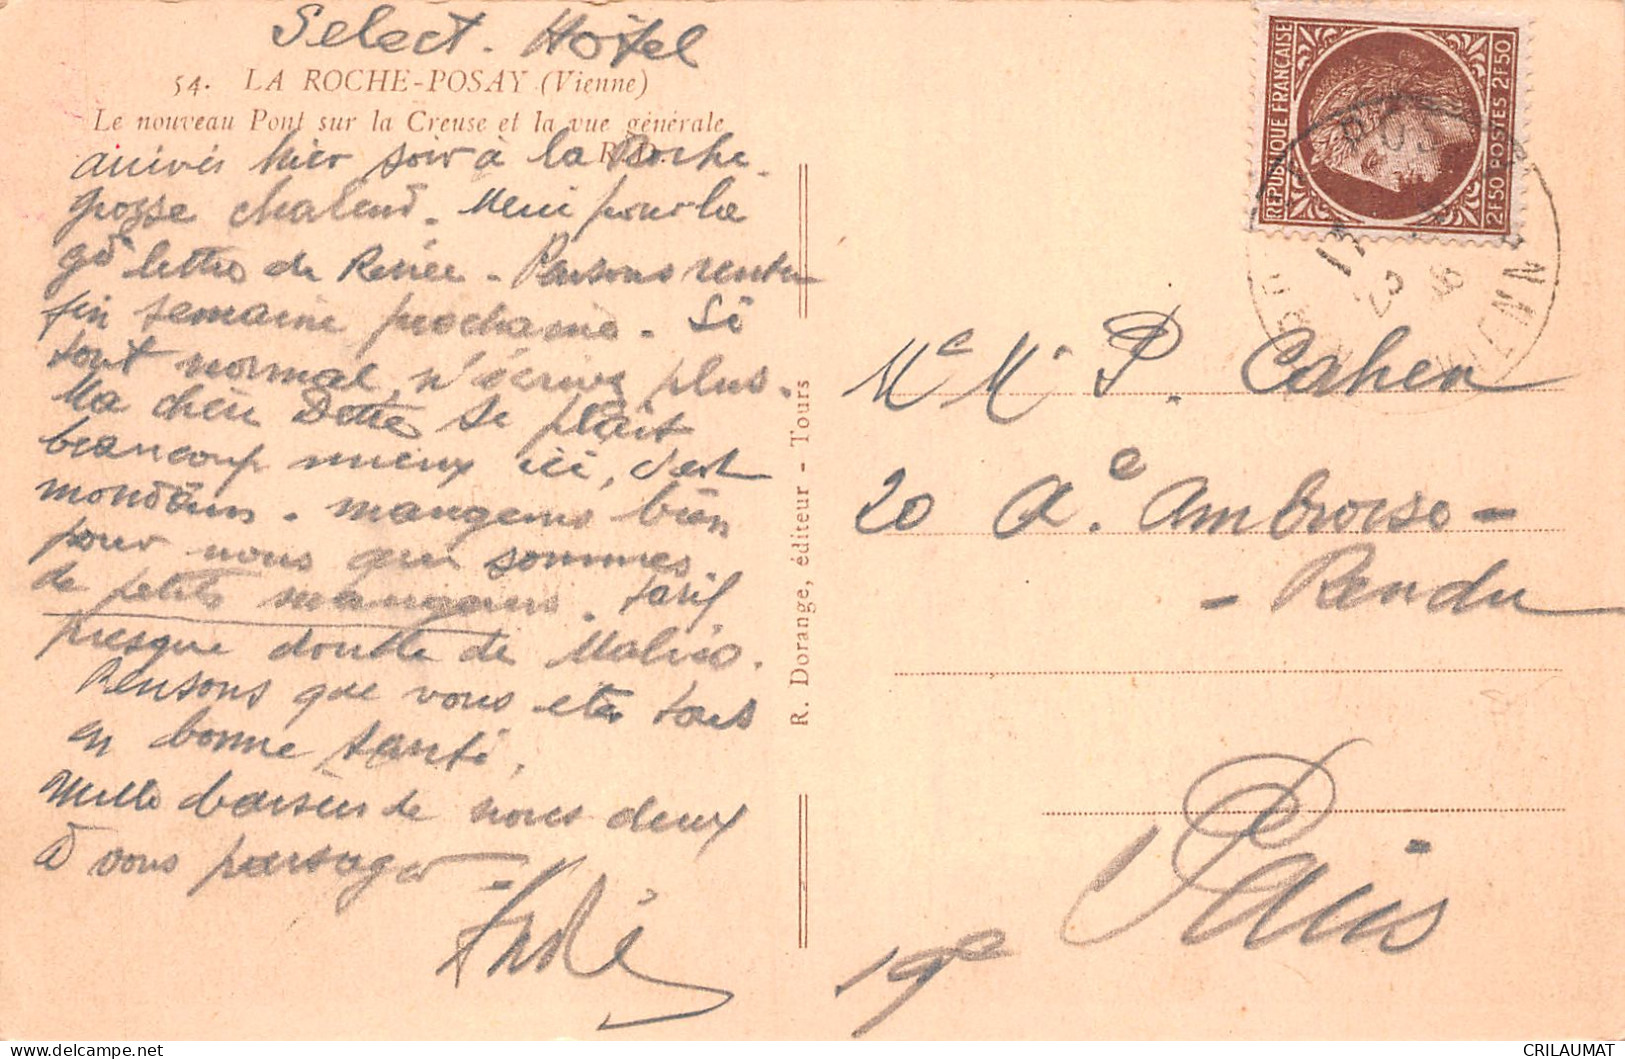 Select. Hôtel
54. LA ROCHE-POSAY (Vienne)
Le nouveau Pont sur la Creuse et la vue générale
R. D.
arrivés hier soir à la Roche.
grosse chaleur. Merci pour la
gde lettre de Renée - Pensons rentrer
fin semaine prochaine. Si
tout normal, n'écrivez plus.
Ma chère Dette se plaît
beaucoup mieux ici, c'est
mondain. mangeons bien
pour nous qui sommes
de petits mangeurs. tarif
presque double de
Pensons que vous êtes tous
en bonne santé.
Mille baisers de nous deux
à vous partager
André
R. Dorange, éditeur - Tours
REPUBLIQUE FRANÇAISE
2F50 POSTES 2F50
POS
13
VIENNE
Me Mr P. Cahen
20 Ae. Ambroise-
- Rendu
Paris -
19e
CRILAUMAT